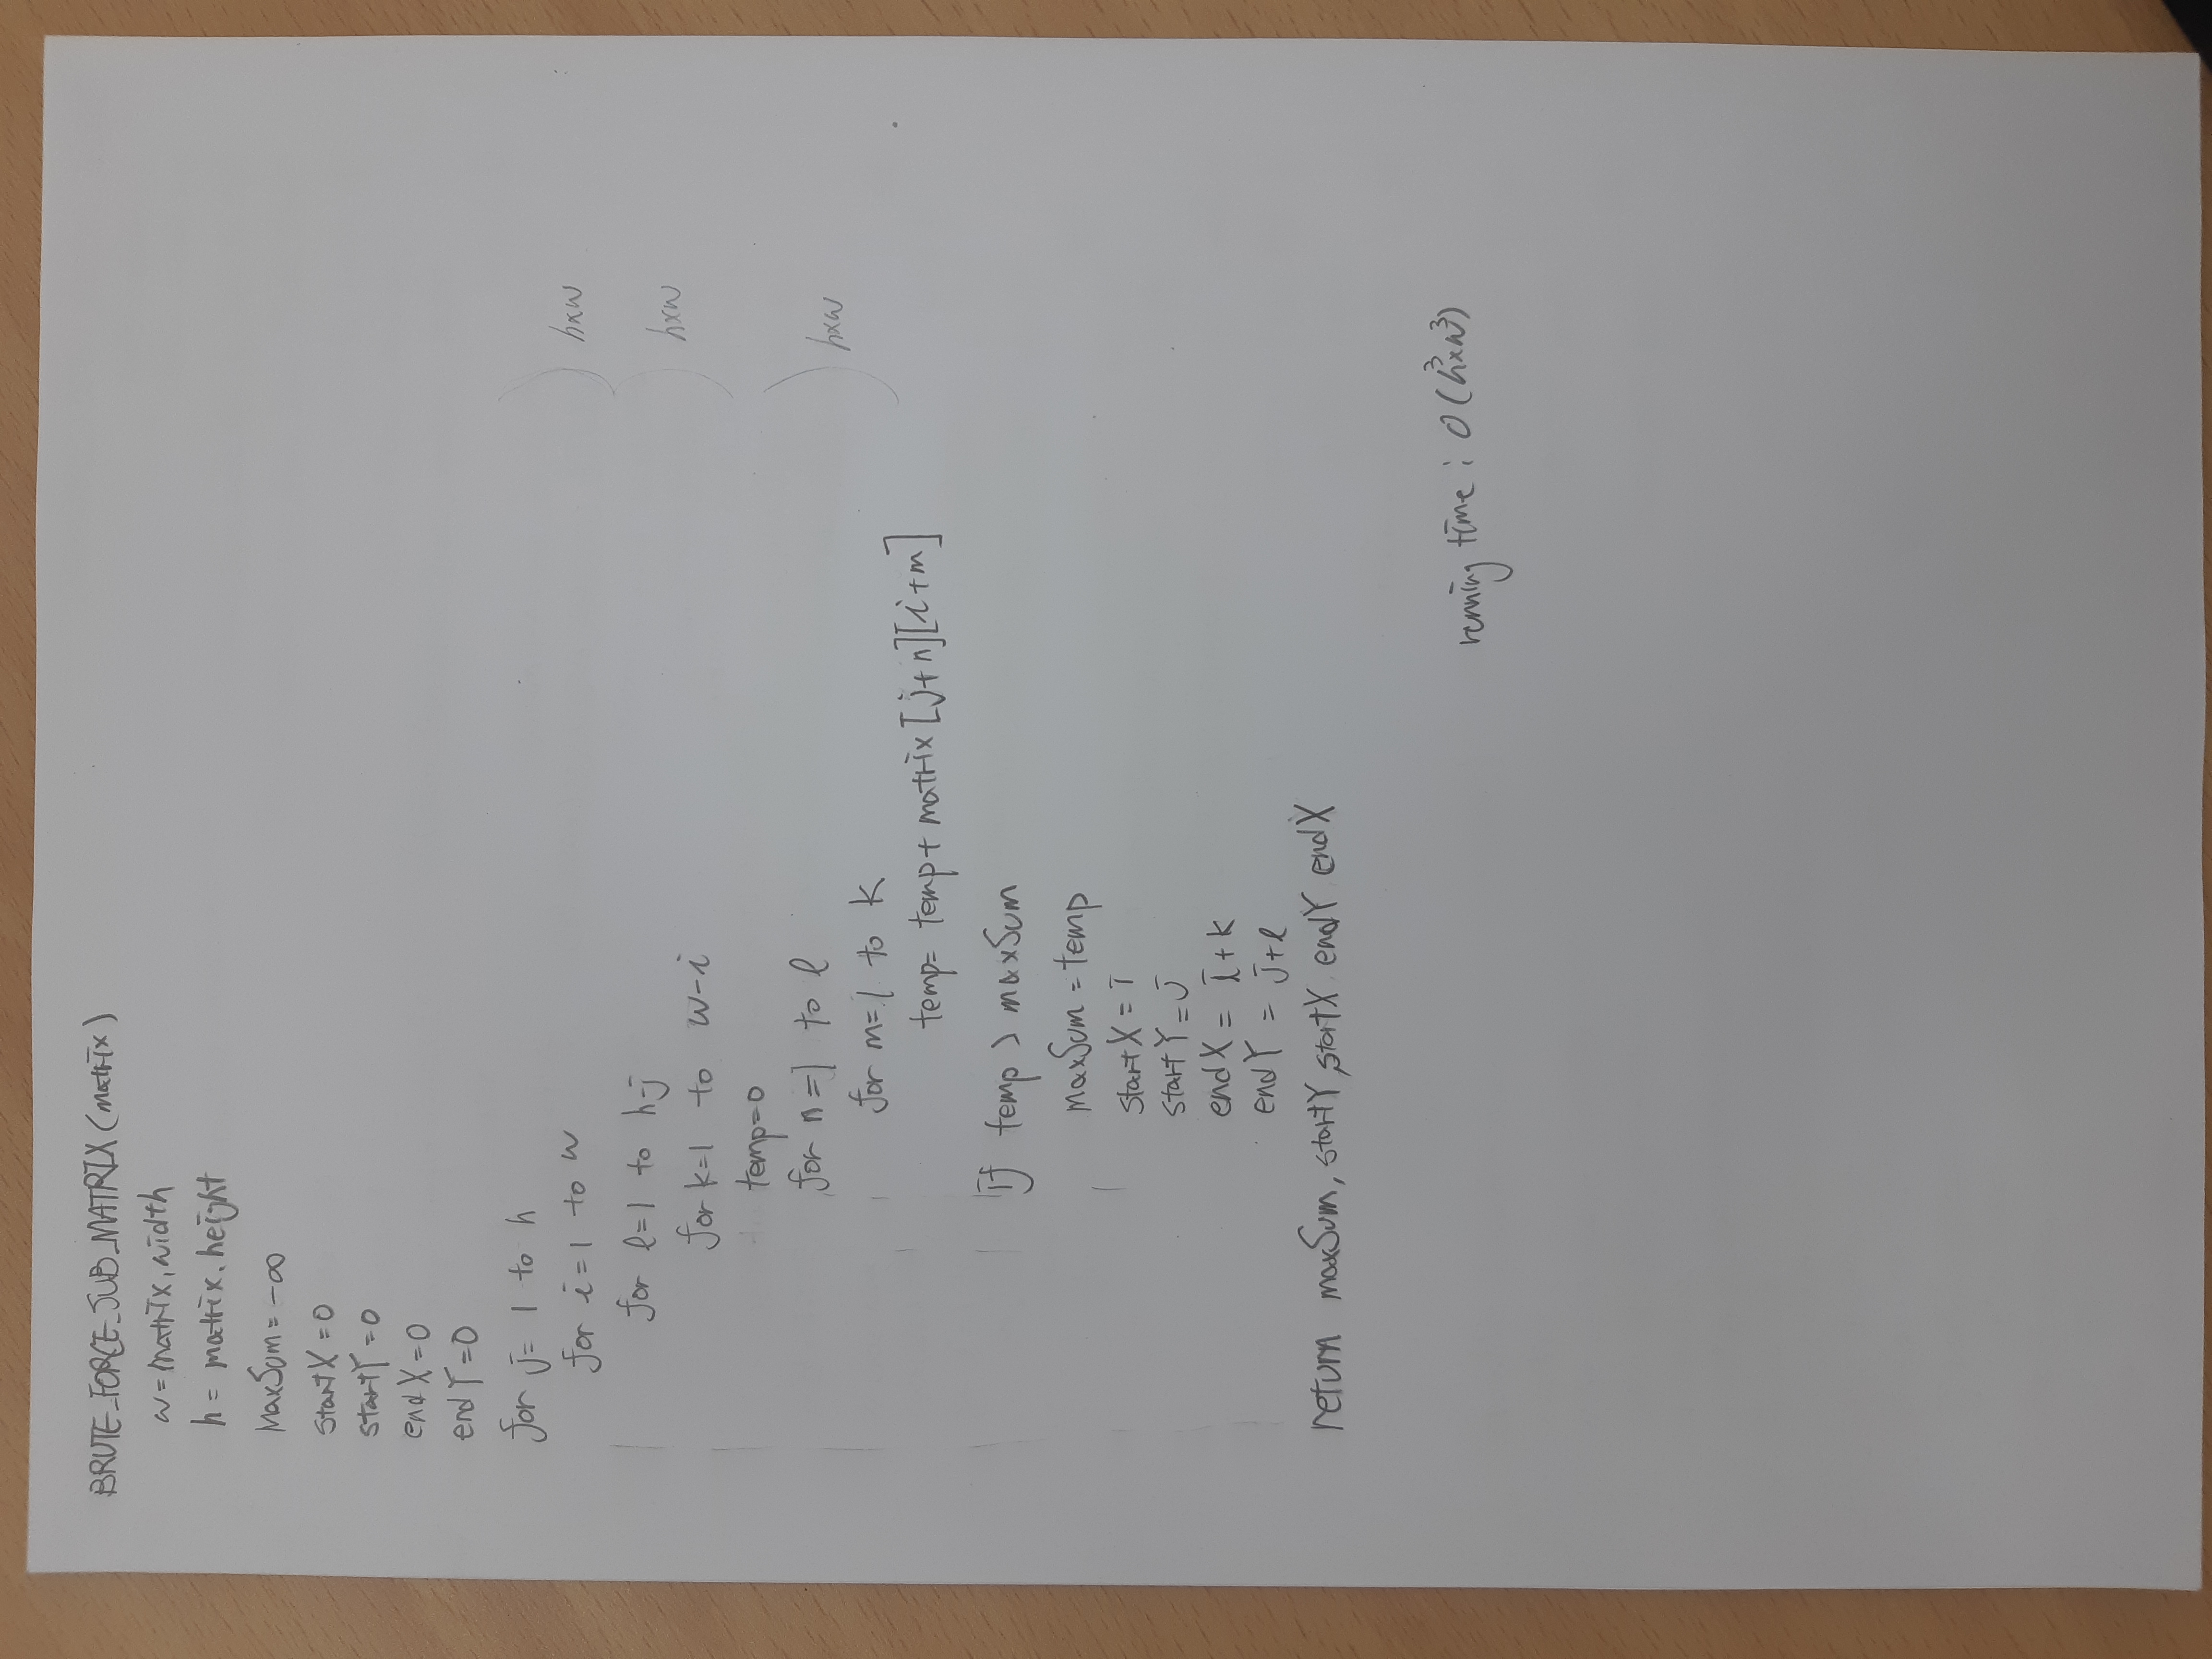 BRUTE_FORCE_SUB_MATRIX (matrix)
w = matrix.width
h = matrix.height
MaxSum = -∞
startX = 0
startY = 0
endX = 0
endY = 0
for j = 1 to h
for i = 1 to w
hxw
for l = 1 to h-j
for k=1 to w-i
hxw
temp=0
for n=1 to l
for m=1 to k
hxw
temp= temp+ matrix [j+n][i+m]
if temp > maxSum
maxSum = temp
startX = i
startY = j
endX = i+k
endY = j+l
return maxSum, startY, startX endY endX
running time : O(h³xw³)